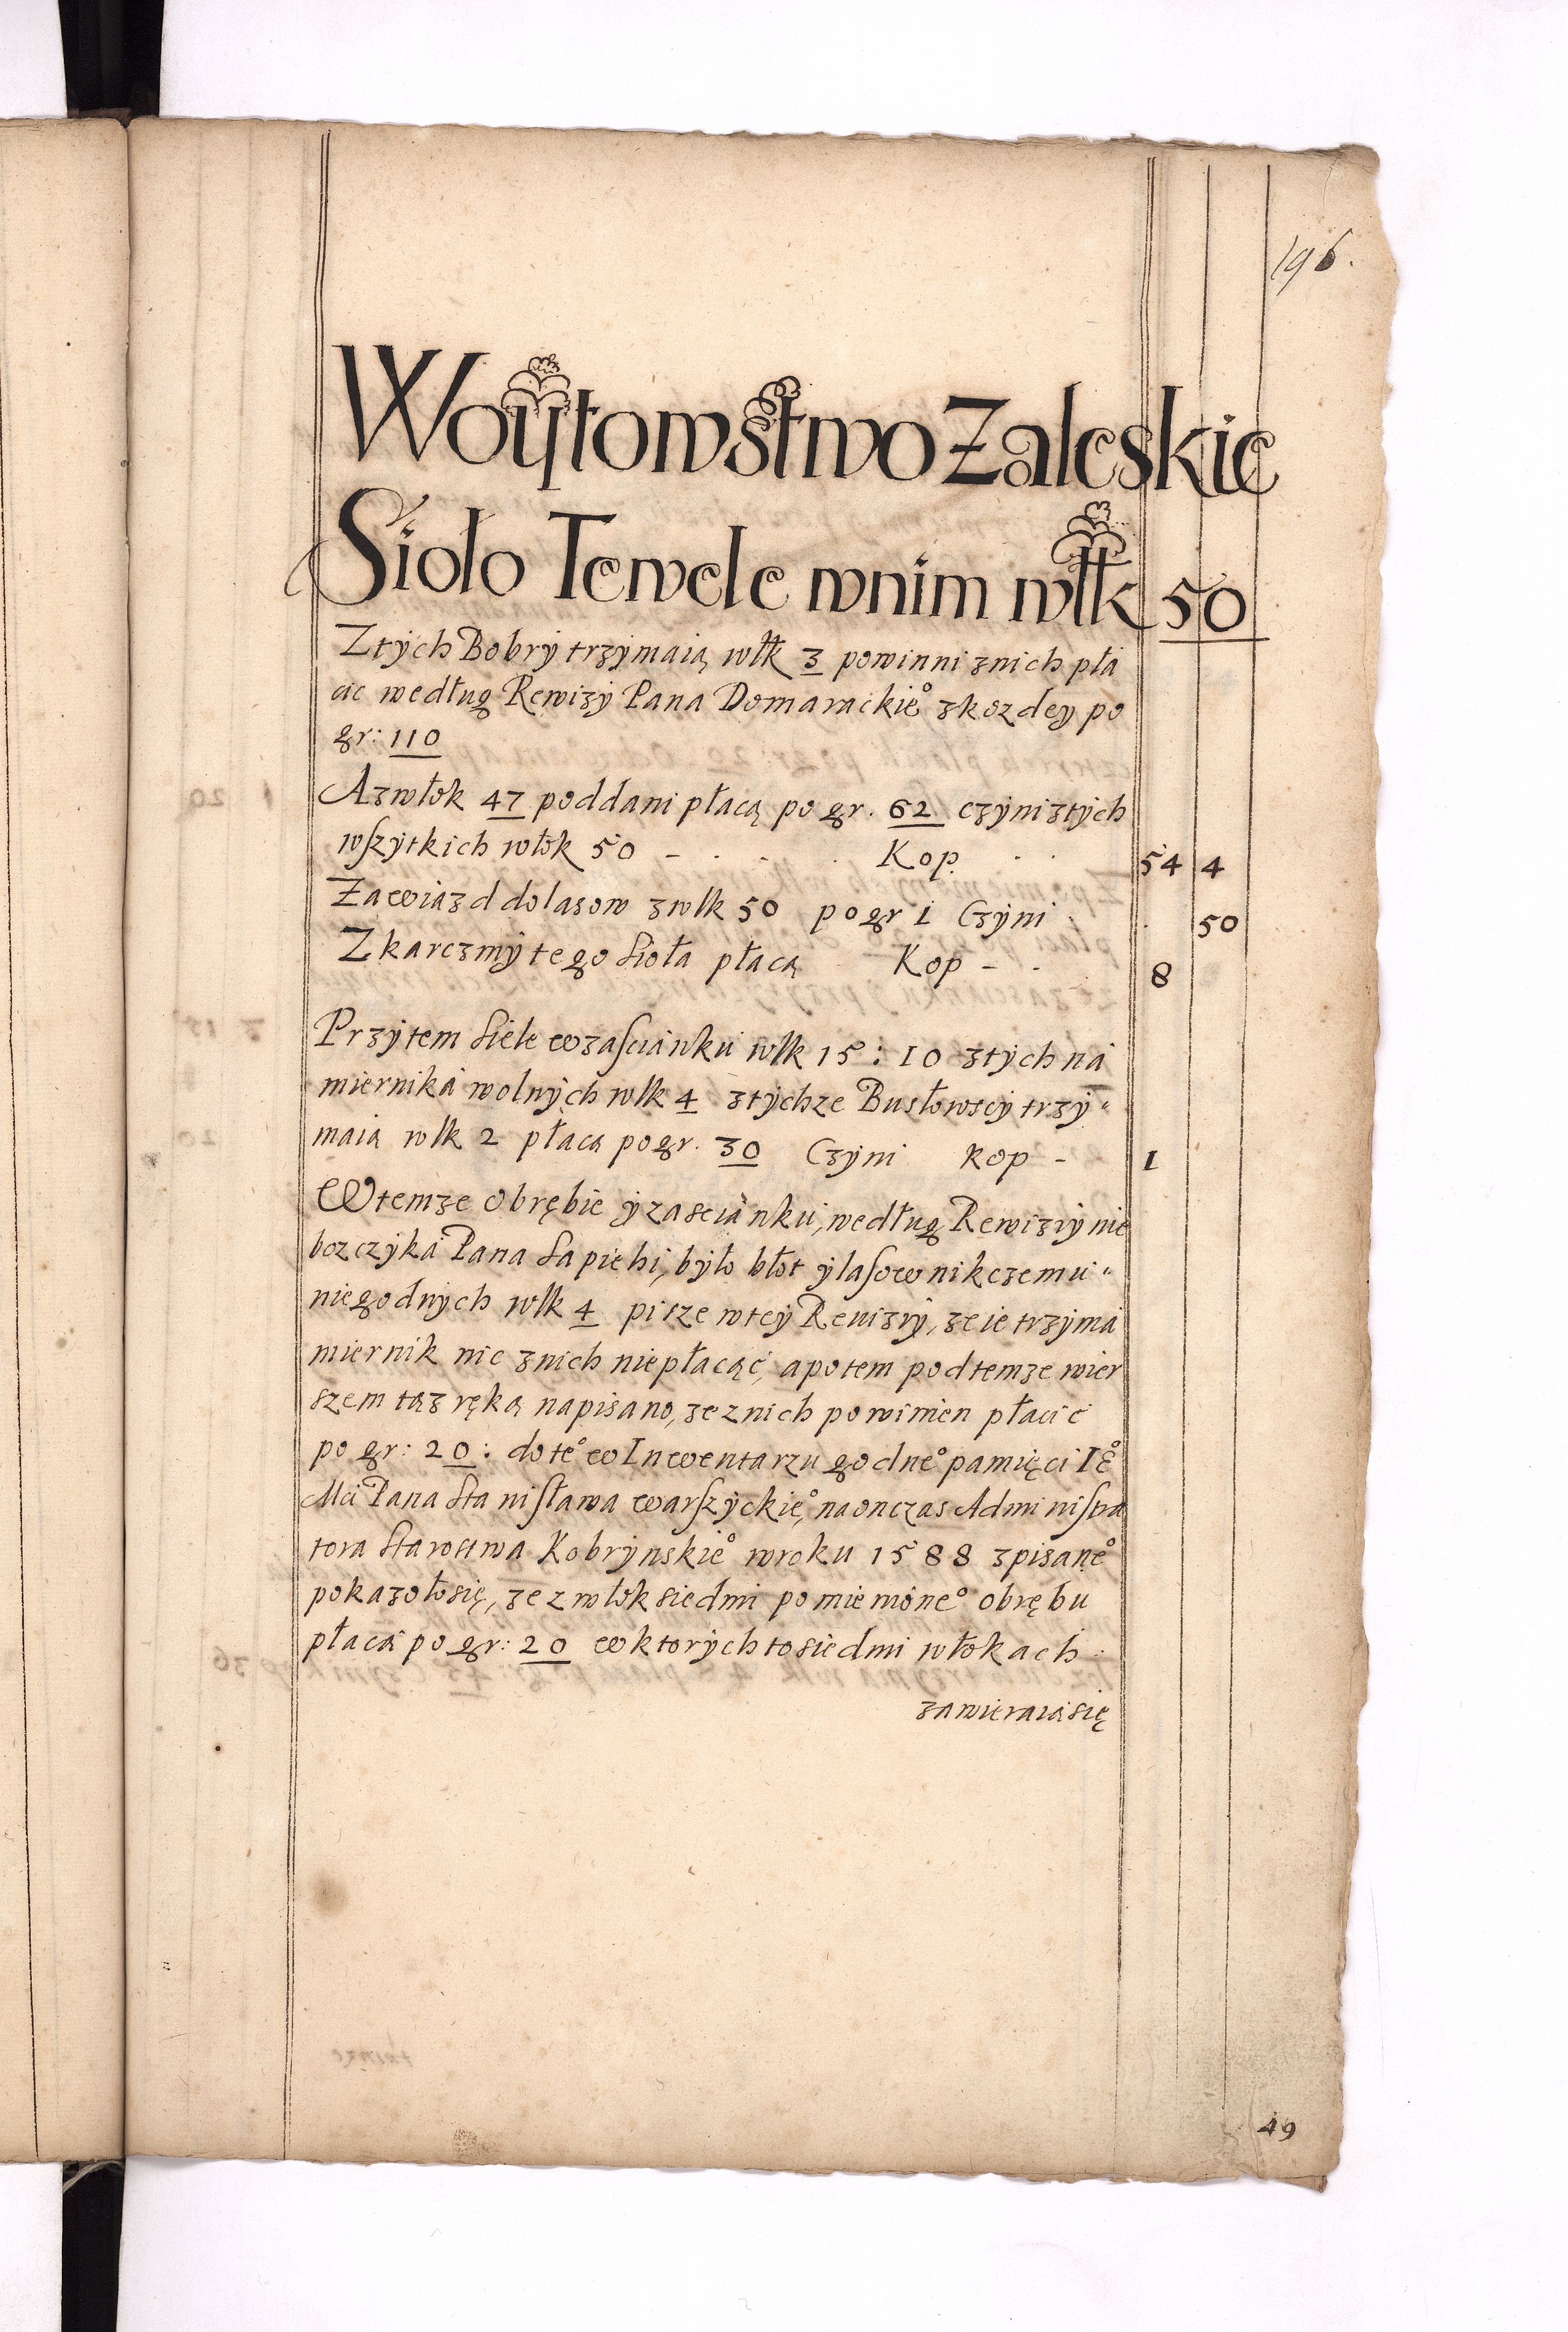 196.
Woÿtowstwo Zaleskie
Sioło Tewele wnim włk 50
Ztych Bobry trzymaią włk 3 powinni znich płá
cic według Rewizy Pana Domarackie° zkozdey po
gr: 110
Azwłok 47 poddani płacą po gr. 62 czyni ztych
wszytkich włok 50 - . . . Kop. . . 54 4
Zawiazd dolasow zwlk 50 po gr 1 Czyni . . 50
Zkarczmy tego Sioła płacą Kop - . 8
Przytem Siele wzasciánku wlk 15 : 10 ztych ná
mierniká wolnych wlk 4 ztychze Busłowscy trzy"
maia wlk 2 płaca po gr. 30 Czyni kop - 1
Wtemze obrębie y zasciánku, według Rewiziy nie
bozczyká Pana Sapiehi, było błot y lasow nikczemu"
niegodnych wlk 4 pisze wtey Reuiziy, ze ie trzymá
miernik nic znich niepłacąć, apotem podtemze wier
szem tąz ręką napisano, ze znich powinien płacić
po gr: 20 : dote° w Inwentarzu godne° pamięci IE°
Mci Pana Stanisława warszyckie°, naonczas Administra
tora Starostwa Kobrynskie° wroku 1588 zpisane°
pokazołosię, ze zwłok siedmi pomienione° obrębu
płacá po gr: 20 wktorych to siedmi włokach
zawieraiąsię
49